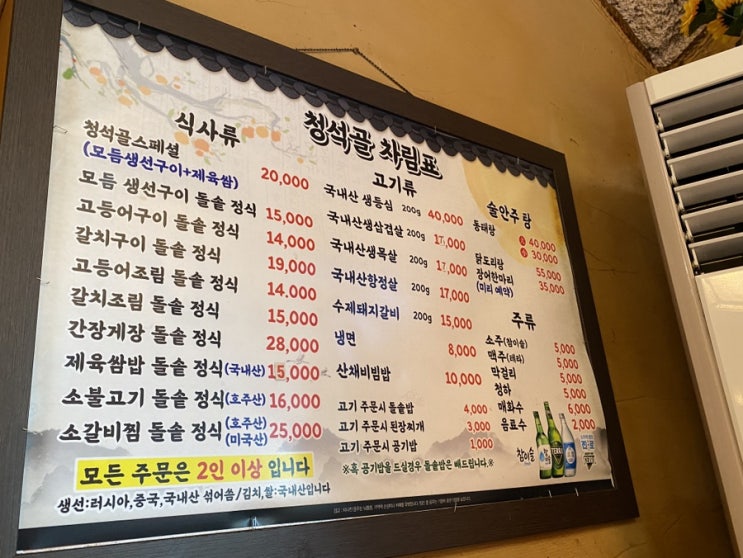 청석골 차림표
식사류
청석골스페셜
(모듬생선구이+제육쌈) 20,000
모듬 생선구이 돌솥 정식 15,000
고등어구이 돌솥 정식 14,000
갈치구이 돌솥 정식 19,000
고등어조림 돌솥 정식 14.000
갈치조림 돌솥 정식 15,000
간장게장 돌솥 정식 28,000
제육쌈밥 돌솥 정식(국내산) 15,000
소불고기 돌솥 정식(호주산) 16,000
소갈비찜 돌솥 정식(호주산)(미국산) 25,000
모든 주문은 2인 이상 입니다
생선:러시아,중국,국내산 섞어씀/김치,쌀:국내산입니다
고기류
국내산 생등심 200g 40,000
국내산생삼겹살 200g 17,000
국내산생목살 200g 17,000
국내산항정살 200g 17,000
수제돼지갈비 200g 15,000
냉면 8,000
산채비빔밥 10,000
고기 주문시 돌솥밥 4,000
고기 주문시 된장찌개 3,000
고기 주문시 공기밥 1,000
※혹 공기밥을 드실경우 돌솥밥은 빼드립니다.※
술안주 탕
동태탕 40,000
30,000
닭도리탕 55,000
장어한마리 35,000
(미리 예약)
주류
소주(참이슬) 5,000
맥주(테라) 5,000
막걸리 5,000
청하 5,000
매화수 6,000
음료수 2,000
참이슬